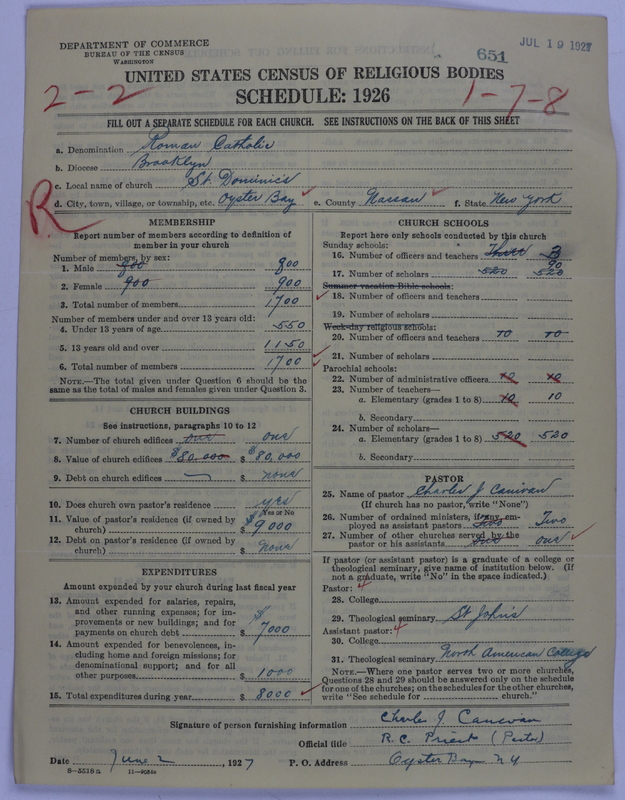 DEPARTMENT OF COMMERCE
BUREAU OF THE CENSUS
WASHINGTON
651
JUL 19 1927
UNITED STATES CENSUS OF RELIGIOUS BODIES
SCHEDULE: 1926
2-2
1-7-8
FILL OUT A SEPARATE SCHEDULE FOR EACH CHURCH. SEE INSTRUCTIONS ON THE BACK OF THIS SHEET
a. Denomination Roman Catholic
b. Diocese Brooklyn
c. Local name of church St. Dominics
d. City, town, village, or township, etc. Oyster Bay e. County Nassau f. State New York
R
MEMBERSHIP
Report number of members according to definition of member in your church
Number of members, by sex:
1. Male 800 800
2. Female 900 900
3. Total number of members 1700
Number of members under and over 13 years old:
4. Under 13 years of age 550
5. 13 years old and over 1150
6. Total number of members 1700
NOTE.—The total given under Question 6 should be the same as the total of males and females given under Question 3.
CHURCH BUILDINGS
See instructions, paragraphs 10 to 12
7. Number of church edifices one one
8. Value of church edifices $80,000 $ 80,000
9. Debt on church edifices — $ none
10. Does church own pastor's residence yes
Yes or No
11. Value of pastor's residence (if owned by church) $ $9,000
12. Debt on pastor's residence (if owned by church) $ none
EXPENDITURES
Amount expended by your church during last fiscal year
13. Amount expended for salaries, repairs, and other running expenses; for improvements or new buildings; and for payments on church debt $ 7000
14. Amount expended for benevolences, including home and foreign missions; for denominational support; and for all other purposes $ 1000
15. Total expenditures during year $ 8000
CHURCH SCHOOLS
Report here only schools conducted by this church
Sunday schools:
16. Number of officers and teachers Three 3
90
17. Number of scholars 520 520
Summer vacation Bible schools:
18. Number of officers and teachers
19. Number of scholars
Week-day religious schools:
20. Number of officers and teachers
21. Number of scholars
Parochial schools:
22. Number of administrative officers 10 10
23. Number of teachers—
a. Elementary (grades 1 to 8) 10 10
b. Secondary
24. Number of scholars—
a. Elementary (grades 1 to 8) 520 520
b. Secondary
PASTOR
25. Name of pastor Charles J Canivan
(If church has no pastor, write "None")
26. Number of ordained ministers, if any, employed as assistant pastors Two Two
27. Number of other churches served by the pastor or his assistants one one
If pastor (or assistant pastor) is a graduate of a college or theological seminary, give name of institution below. (If not a graduate, write "No" in the space indicated.)
Pastor: 4
28. College
29. Theological seminary St John's
Assistant pastor: 4
30. College
31. Theological seminary North American College
NOTE.—Where one pastor serves two or more churches, Questions 28 and 29 should be answered only on the schedule for one of the churches; on the schedules for the other churches, write "See schedule for church."
Signature of person furnishing information Charles J. Canivan
Official title R. C. Priest (Pastor)
Date June 2, 1927 P. O. Address Oyster Bay N Y
8-5518a 11-9054a